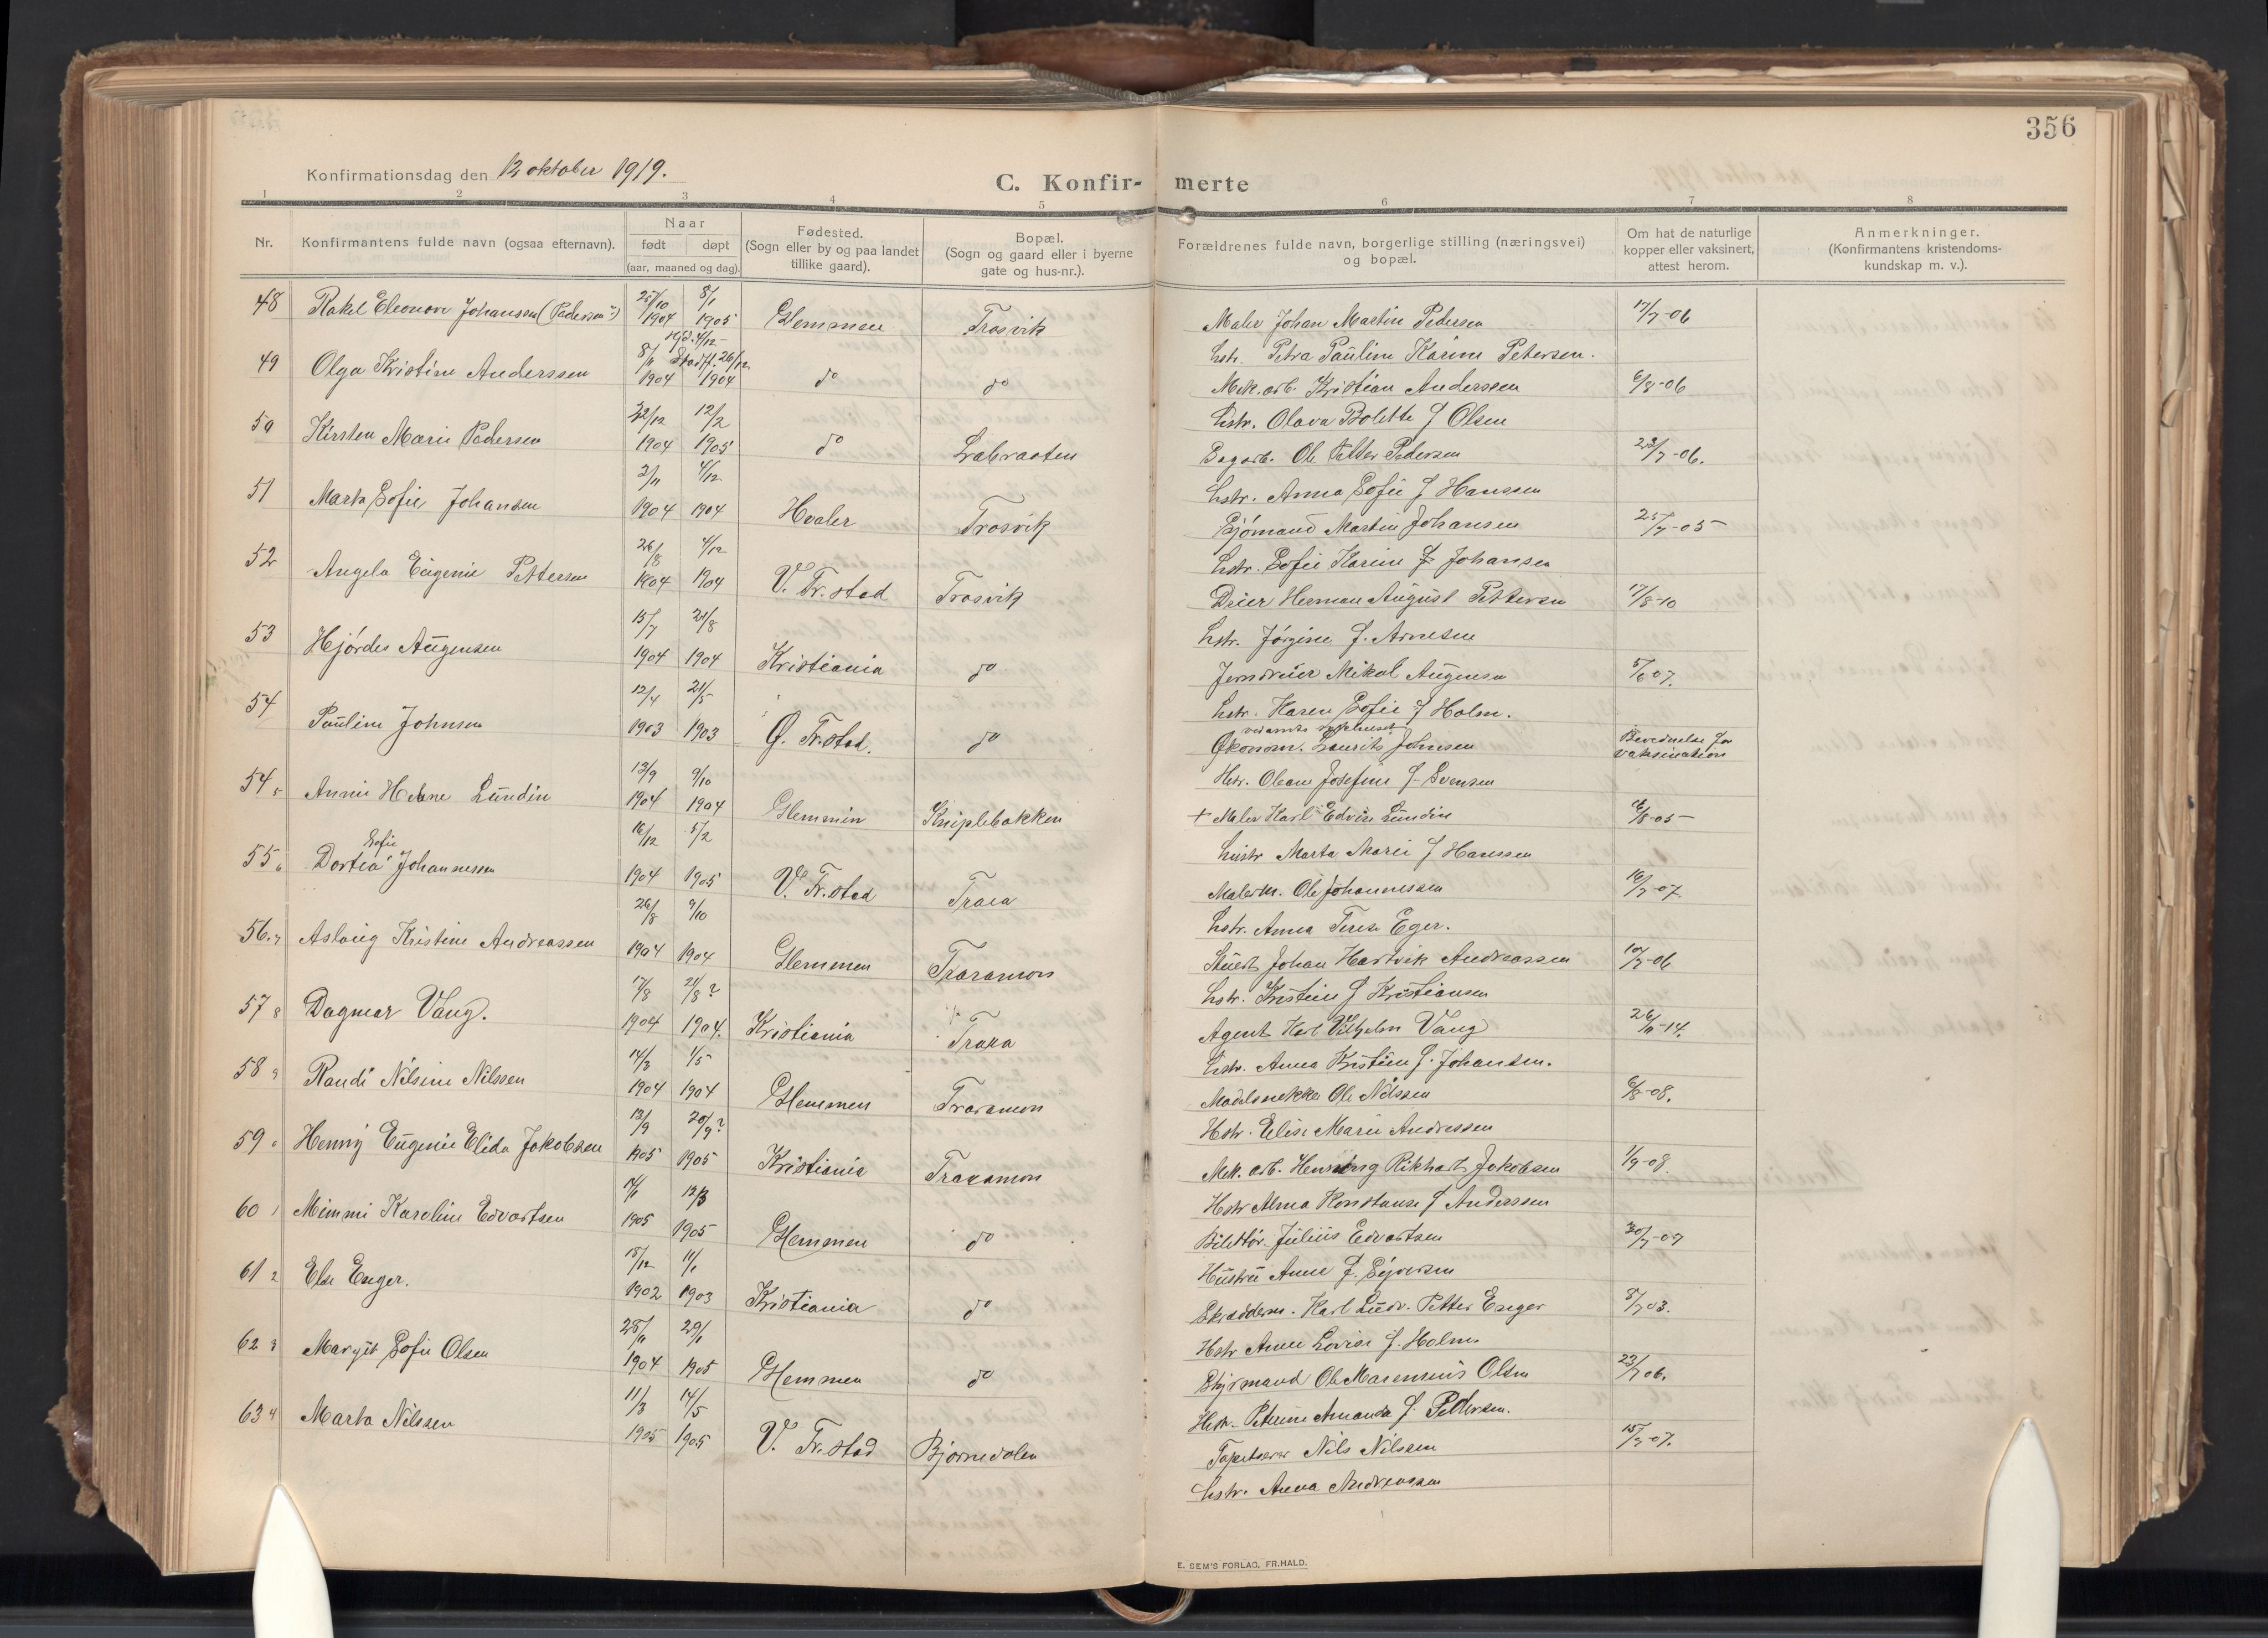 356
Konfirmationsdag den 12 oktober 1919.
C. Konfir-merte
1 2 3 4 5 6 7 8
Nr.
Konfirmantens fulde navn (ogsaa efternavn).
Naar
født døpt
(aar, maaned og dag).
Fødested.
(Sogn eller by og paa landet
tillike gaard).
Bopæl.
(Sogn og gaard eller i byerne
gate og hus-nr.).
Forældrenes fulde navn, borgerlige stilling (næringsvei)
og bopæl.
Om hat de naturlige
kopper eller vaksinert,
attest herom.
Anmerkninger.
(Konfirmantens kristendoms-
kundskap m. v.).
48 Rakel Eleonore Johansen (Pedersen) 25/10 1904 8/1 1905 Glemmen Trosvik Maler Johan Martin Pedersen 17/7-06
hstr. Petra Pauline Karine Petersen.
49 Olga Kristine Anderssen 8/11 1904 hjd. 4/12 Stadf. 26/12 1904 do do Mek. arb. Kristian Anderssen 6/8-06
hstr. Olava Bolette f Olsen
50 Kirsten Marie Pedersen 22/12 1904 12/2 1905 do Labraaten Sagarb. Ole Petter Pedersen 23/7-06.
hstr. Anna Sofie f Hanssen
51 Marta Sofie Johansen 2/11 1904 4/12 1904 Hvaler Trosvik Sjømand Martin Johansen 25/7-05
hstr. Sofie Karine f Johansen
52 Angela Eugenie Pettersen 26/8 1904 4/12 1904 V. Fr.stad Trosvik Dreier Herman August Pettersen 17/8-10
hstr. Jørgine f. Arnesen
53 Hjørdes Augensen 15/7 1904 21/8 1904 Kristiania do Jerndreier Mikal Augensen 5/6 07.
hstr. Karen Sofie f Holm.
54 Pauline Johnsen 12/4 1903 21/5 1903 Ø. Fr.stad. do Økonom. Laurits Johnsen Bevidnelse for
vaksination
Hstr. Oleane Josefine f. Svensen
54 5 Annie Helene Lundin 13/9 1904 9/10 1904 Glemmen Kniplebakken + Maler Karl Edvin Lundin 6/8-05
hustr Marta Marie f Hanssen
55 6 Dortea Sofie Johannessen 16/12 1904 5/2 1905 V. Fr.stad Trara Malerm. Ole Johannessen 16/7-07.
hstr. Anna Terese Eger.
56. 7 Aslaug Kristine Andreassen 26/8 1904 9/10 1904 Glemmen Traramoen Stuert Johan Hartvik Andreassen 10/7-06
hstr. Kristine f Kristiansen
57 8 Dagmar Vang. 17/8 1904 21/8? 1904. Kristiania Trara Agent Karl Vilhelm Vang 26/11-14.
hstr. Anna Kristine f. Johansen.
58 9 Randi Nilsine Nilssen 14/3 1904 1/5 1904 Glemmen Traramoen Modelsnekker Ole Nilssen 6/8-08.
Hstr. Elise Marie Andressen
59 0 Henny Eugenie Elida Jakobsen 13/9 1905 20/9? 1905 Kristiania Traramoen Mek. arb. Henning Rikhart Jakobsen 1/9-08.
Hstr Alma Konstanse f Anderssen
60 1 Mimmi Karoline Edvartsen 14/1 1905 12/3 1905 Glemmen do Billettør Julius Edvartsen 30/7-07
Hustru Anne f. Syversen
61 2 Else Enger. 18/12 1902 11/1 1903 Kristiania do Skredderm. Karl Ludv. Petter Enger 5/7 03.
Hstr Anne Lovise f. Holm
62 3 Margit Sofie Olsen 25/11 1904 29/1 1905 Glemmen do Styrmand Ole Marensius Olsen 23/7 06.
Hstr. Peterine Amanda f. Pettersen.
63 4 Marta Nilssen 11/3 1905 14/5 1905 V. Fr.stad Bjørnedalen Tapetserer Nils Nilssen 15/7-07.
hstr. Anna Andreassen
E. SEM'S FORLAG, FR.HALD.